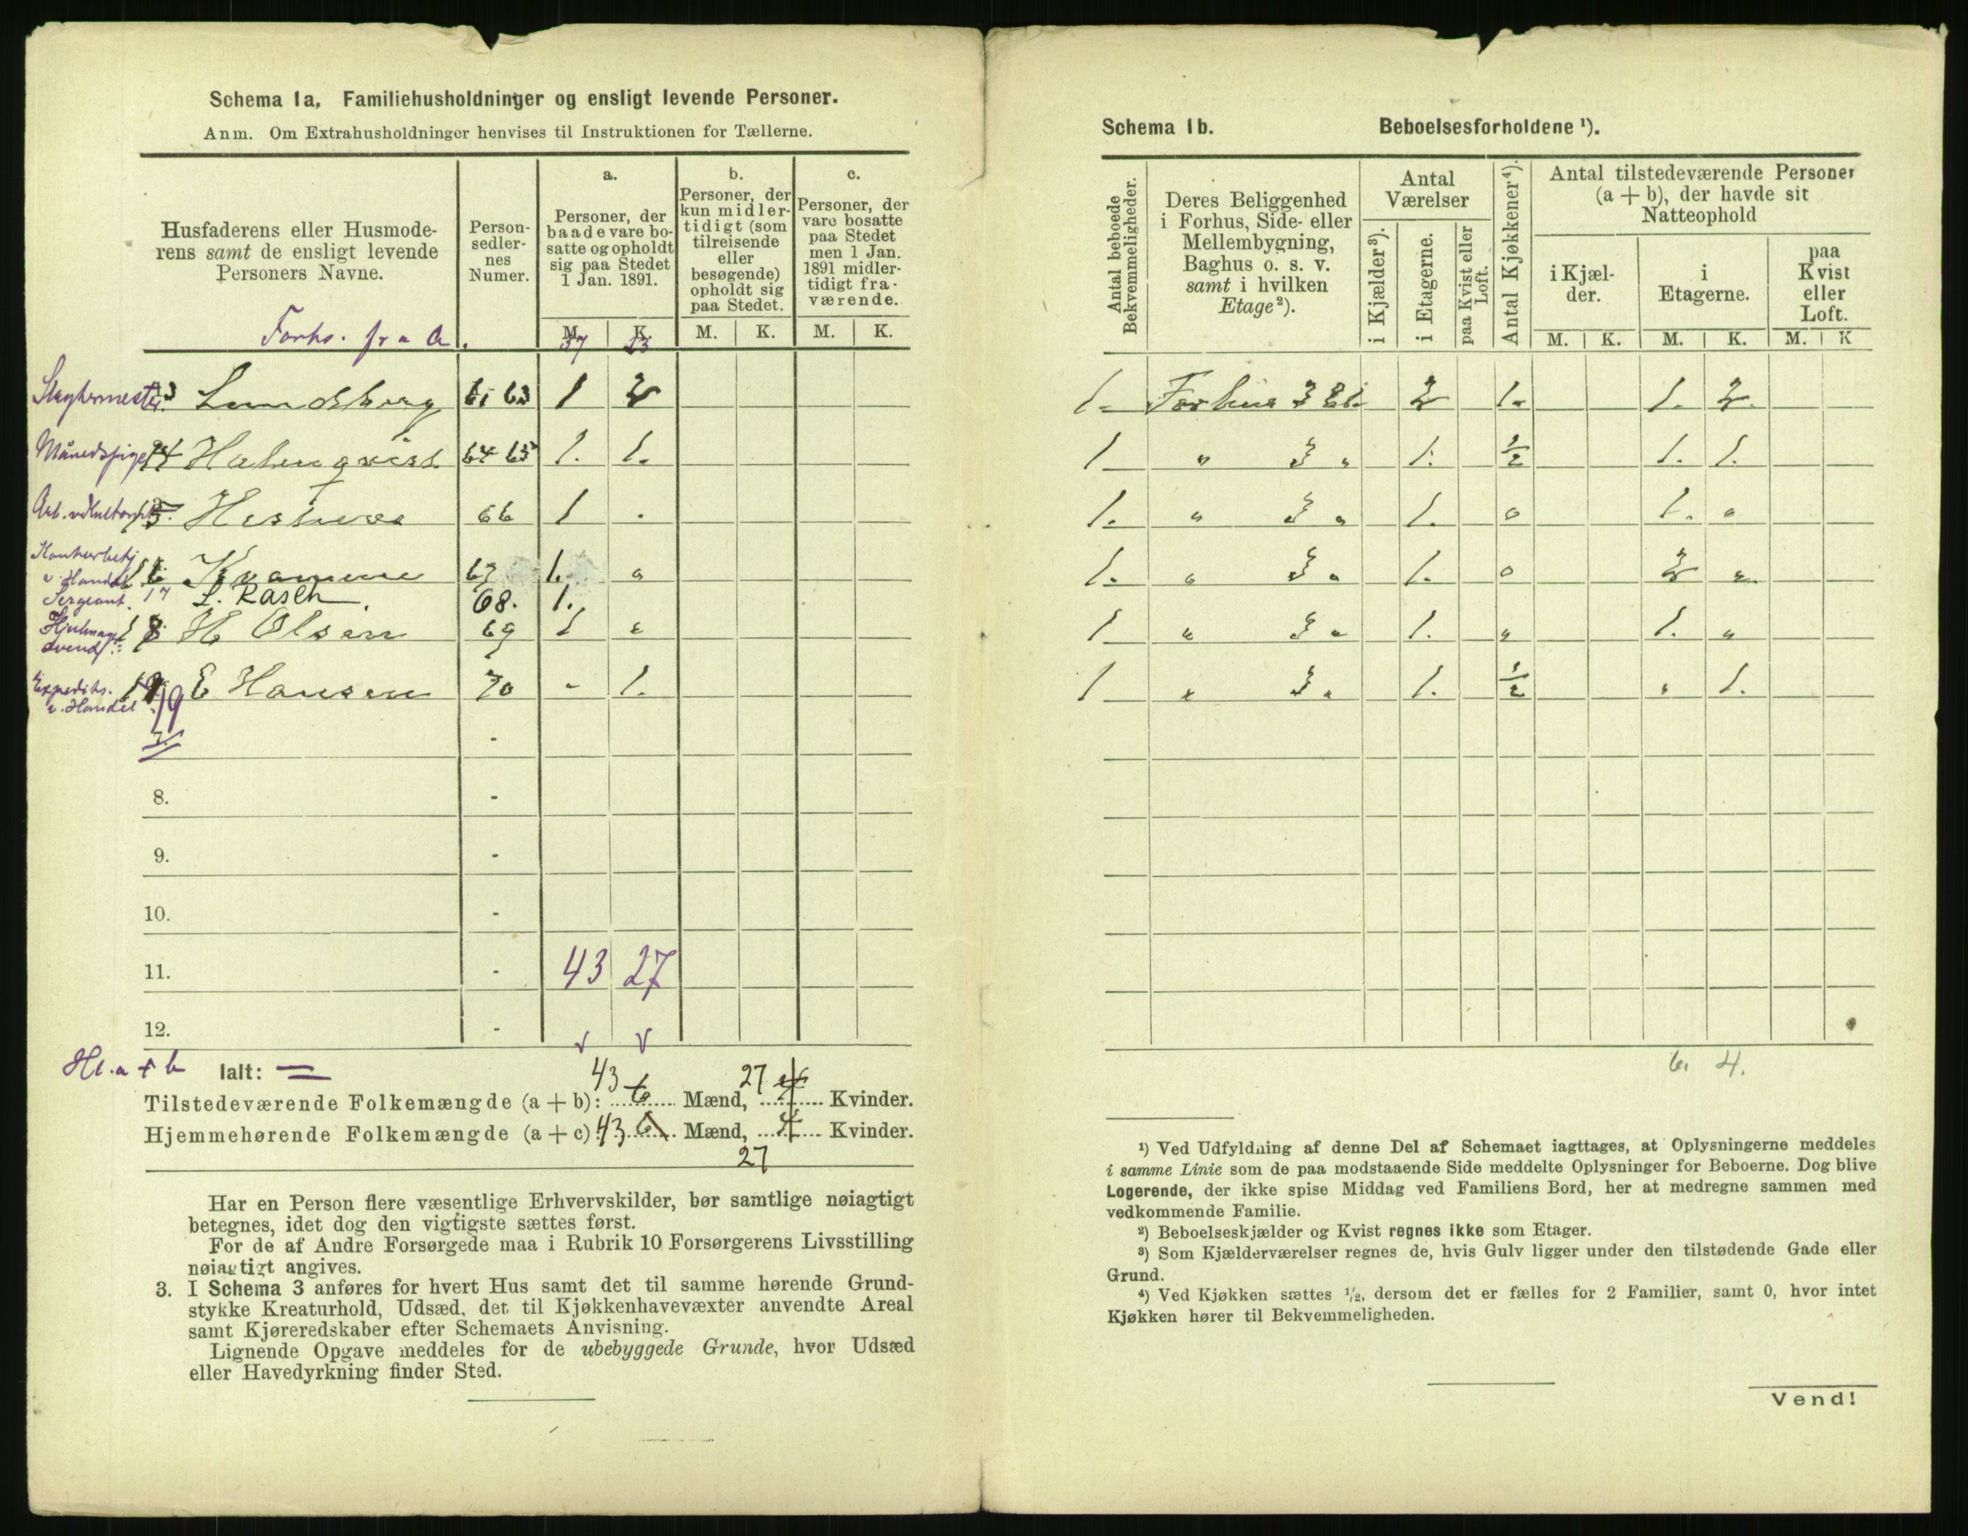 Schema 1a. Familiehusholdninger og ensligt levende Personer.
Anm. Om Extrahusholdninger henvises til Instruktionen for Tællerne.
Husfaderens eller Husmoderens samt de ensligt levende Personers Navne.
Personsedlernes Numer.
a. Personer, der baade vare bosatte og opholdt sig paa Stedet 1 Jan. 1891.
b. Personer, der kun midlertidigt (som tilreisende eller besøgende) opholdt sig paa Stedet.
c. Personer, der vare bosatte paa Stedet men 1 Jan. 1891 midlertidigt fraværende.
M. K. M. K. M. K.
Forhs. fra A. 37 23
13 Lundsberg 61 63 1 2
14 Holmqvist 64 65 1. 1.
15 66 1 .
16 Kvamme 67 1. "
Sergeant. 17 L. Rasch 68. 1.
18 H Olsen 69 1 "
v. Handel 19 E Hansen 70 - 1.
7. -
8. -
9. -
10. -
11. - 43 27
12. -
Hl. a + b Ialt:
Tilstedeværende Folkemængde (a + b): 43 6 Mænd, 27 4 Kvinder.
Hjemmehørende Folkemængde (a + c): 43 6 Mænd, 4 Kvinder.
27
Har en Person flere væsentlige Erhvervskilder, bør samtlige nøiagtigt
betegnes, idet dog den vigtigste sættes først.
For de af Andre Forsørgede maa i Rubrik 10 Forsørgerens Livsstilling
nøiagtigt angives.
3. I Schema 3 anføres for hvert Hus samt det til samme hørende Grund-
stykke Kreaturhold, Udsæd, det til Kjøkkenhavevæxter anvendte Areal
samt Kjøreredskaber efter Schemaets Anvisning.
Lignende Opgave meddeles for de ubebyggede Grunde, hvor Udsæd
eller Havedyrkning finder Sted.
Schema 1b. Beboelsesforholdene ¹).
Antal beboede Bekvemmeligheder.
Deres Beliggenhed i Forhus, Side- eller Mellembygning, Baghus o. s. v. samt i hvilken Etage²).
Antal Værelser
i Kjælder³).
i Etagerne.
paa Kvist eller Loft.
Antal Kjøkkener⁴).
Antal tilstedeværende Personer (a + b), der havde sit Natteophold
i Kjælder.
i Etagerne.
paa Kvist eller Loft.
M. K. M. K. M. K
1. Forhus 3 Et. 2 1. 1. 2.
1 " 3 " 1. ½ 1. 1.
1. " 3 " 1. 0 1. "
1. " 3 " 1. 0 2 "
1 " 3 " 1. " 1. "
1 " 3 " 1. ½ " 1.
6. 4.
¹) Ved Udfyldning af denne Del af Schemaet iagttages, at Oplysningerne meddeles
i samme Linie som de paa modstaaende Side meddelte Oplysninger for Beboerne. Dog blive
Logerende, der ikke spise Middag ved Familiens Bord, her at medregne sammen med
vedkommende Familie.
²) Beboelseskjælder og Kvist regnes ikke som Etager.
³) Som Kjælderværelser regnes de, hvis Gulv ligger under den tilstødende Gade eller
Grund.
⁴) Ved Kjøkken sættes ½, dersom det er fælles for 2 Familier, samt 0, hvor intet
Kjøkken hører til Bekvemmeligheden.
Vend!